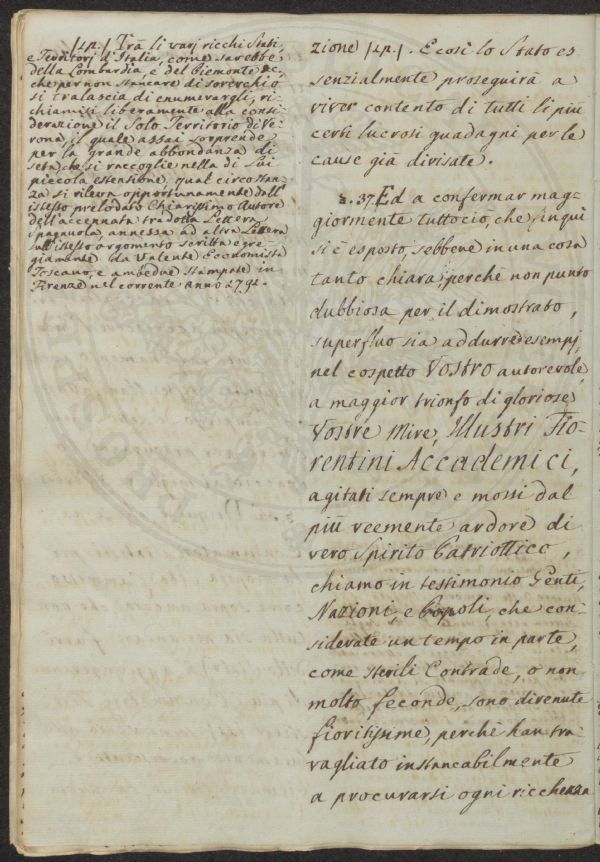 /4p./ Trà li varj ricchi Stati,
e Territorj d'Italia, come sarebbe
della Lombardia, e del Piemonte &c,
che per non stancare di soverchio
si tralascia di enumerargli, ri-
chiamisi liberamente alla consi-
derazione il Solo Territorio di Ve-
rona, il quale assai sorprende
per la grande abbondanza di
seta che si raccoglie nella di Lui
piccola estensione, qual circostan-
za si rileva opportunamente dall'
istesso prelodato Chiarissimo Autore
dell'accennata tradotta Lettera
Spagnuola, annessa ad altra Lettera
sull'istesso argomento scritta egre-
giamente da Valente Economista
Toscano, e ambedue Stampate in
Firenze nel corrente anno 1791.
zione /4p./. E così lo Stato es
senzialmente proseguirà a
viver contento di tutti li più
certi lucrosi guadagni per le
cause già divisate.
§. 37. Ed a confermar mag-
giormente tuttociò, che fin qui
si è esposto, sebbene in una cosa
tanto chiara, perchè non punto
dubbiosa per il dimostrato,
superfluo sia addurre esempj
nel cospetto Vostro autorevole,
a maggior trionfo di gloriose
Vostre Mire, Illustri Fio-
rentini Accademici,
agitati sempre e mossi dal
più veemente ardore di
vero Spirito Patriottico,
chiamo in testimonio Genti,
Nazioni, e Popoli, che con-
siderate un tempo in parte,
come sterili Contrade, o non
molto feconde, sono divenute
fioritissime, perchè han tra-
vagliato instancabilmente
a procurarsi ogni ricchezza